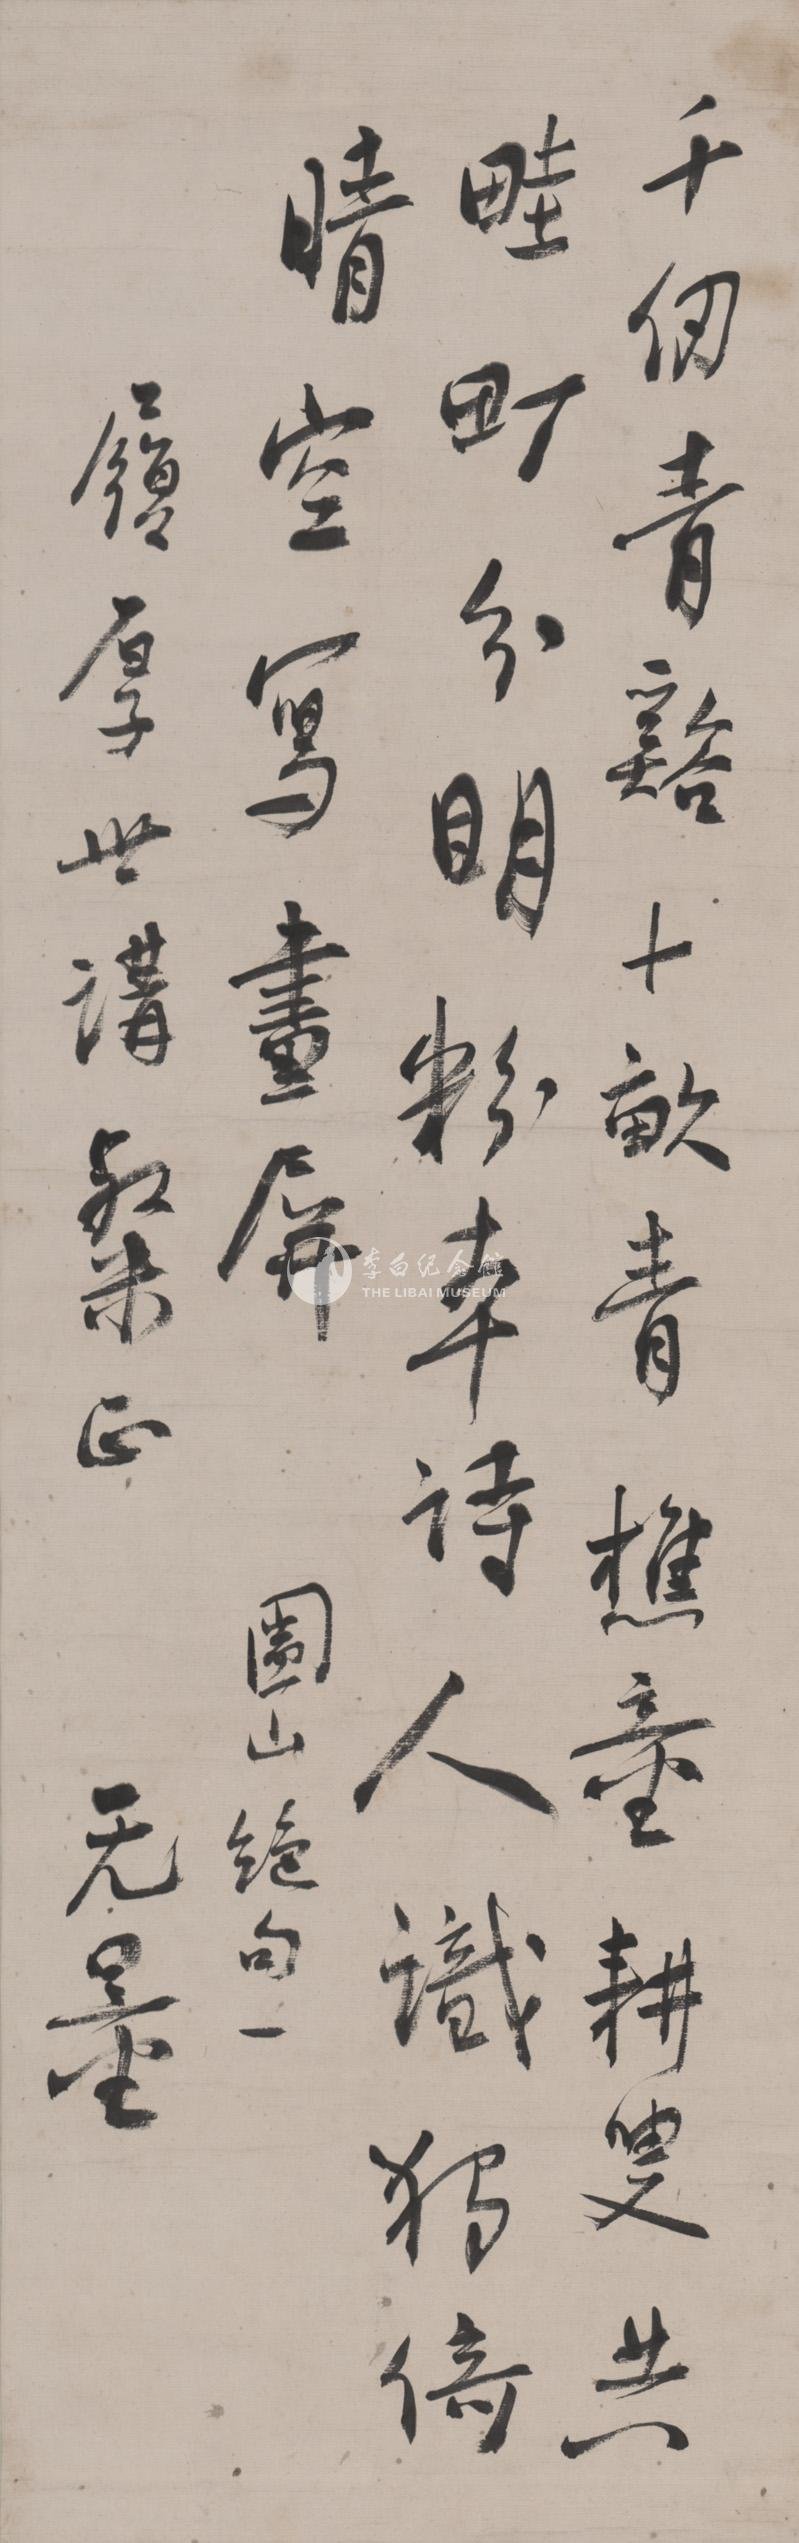 千仞青谿十畝青樵童耕叟共
畦町分明粉夲詩人識獨倚
晴空寫畫屏
圌山絕句一
履厚世講粲正
无量
李白纪念馆
THE LIBAI MUSEUM